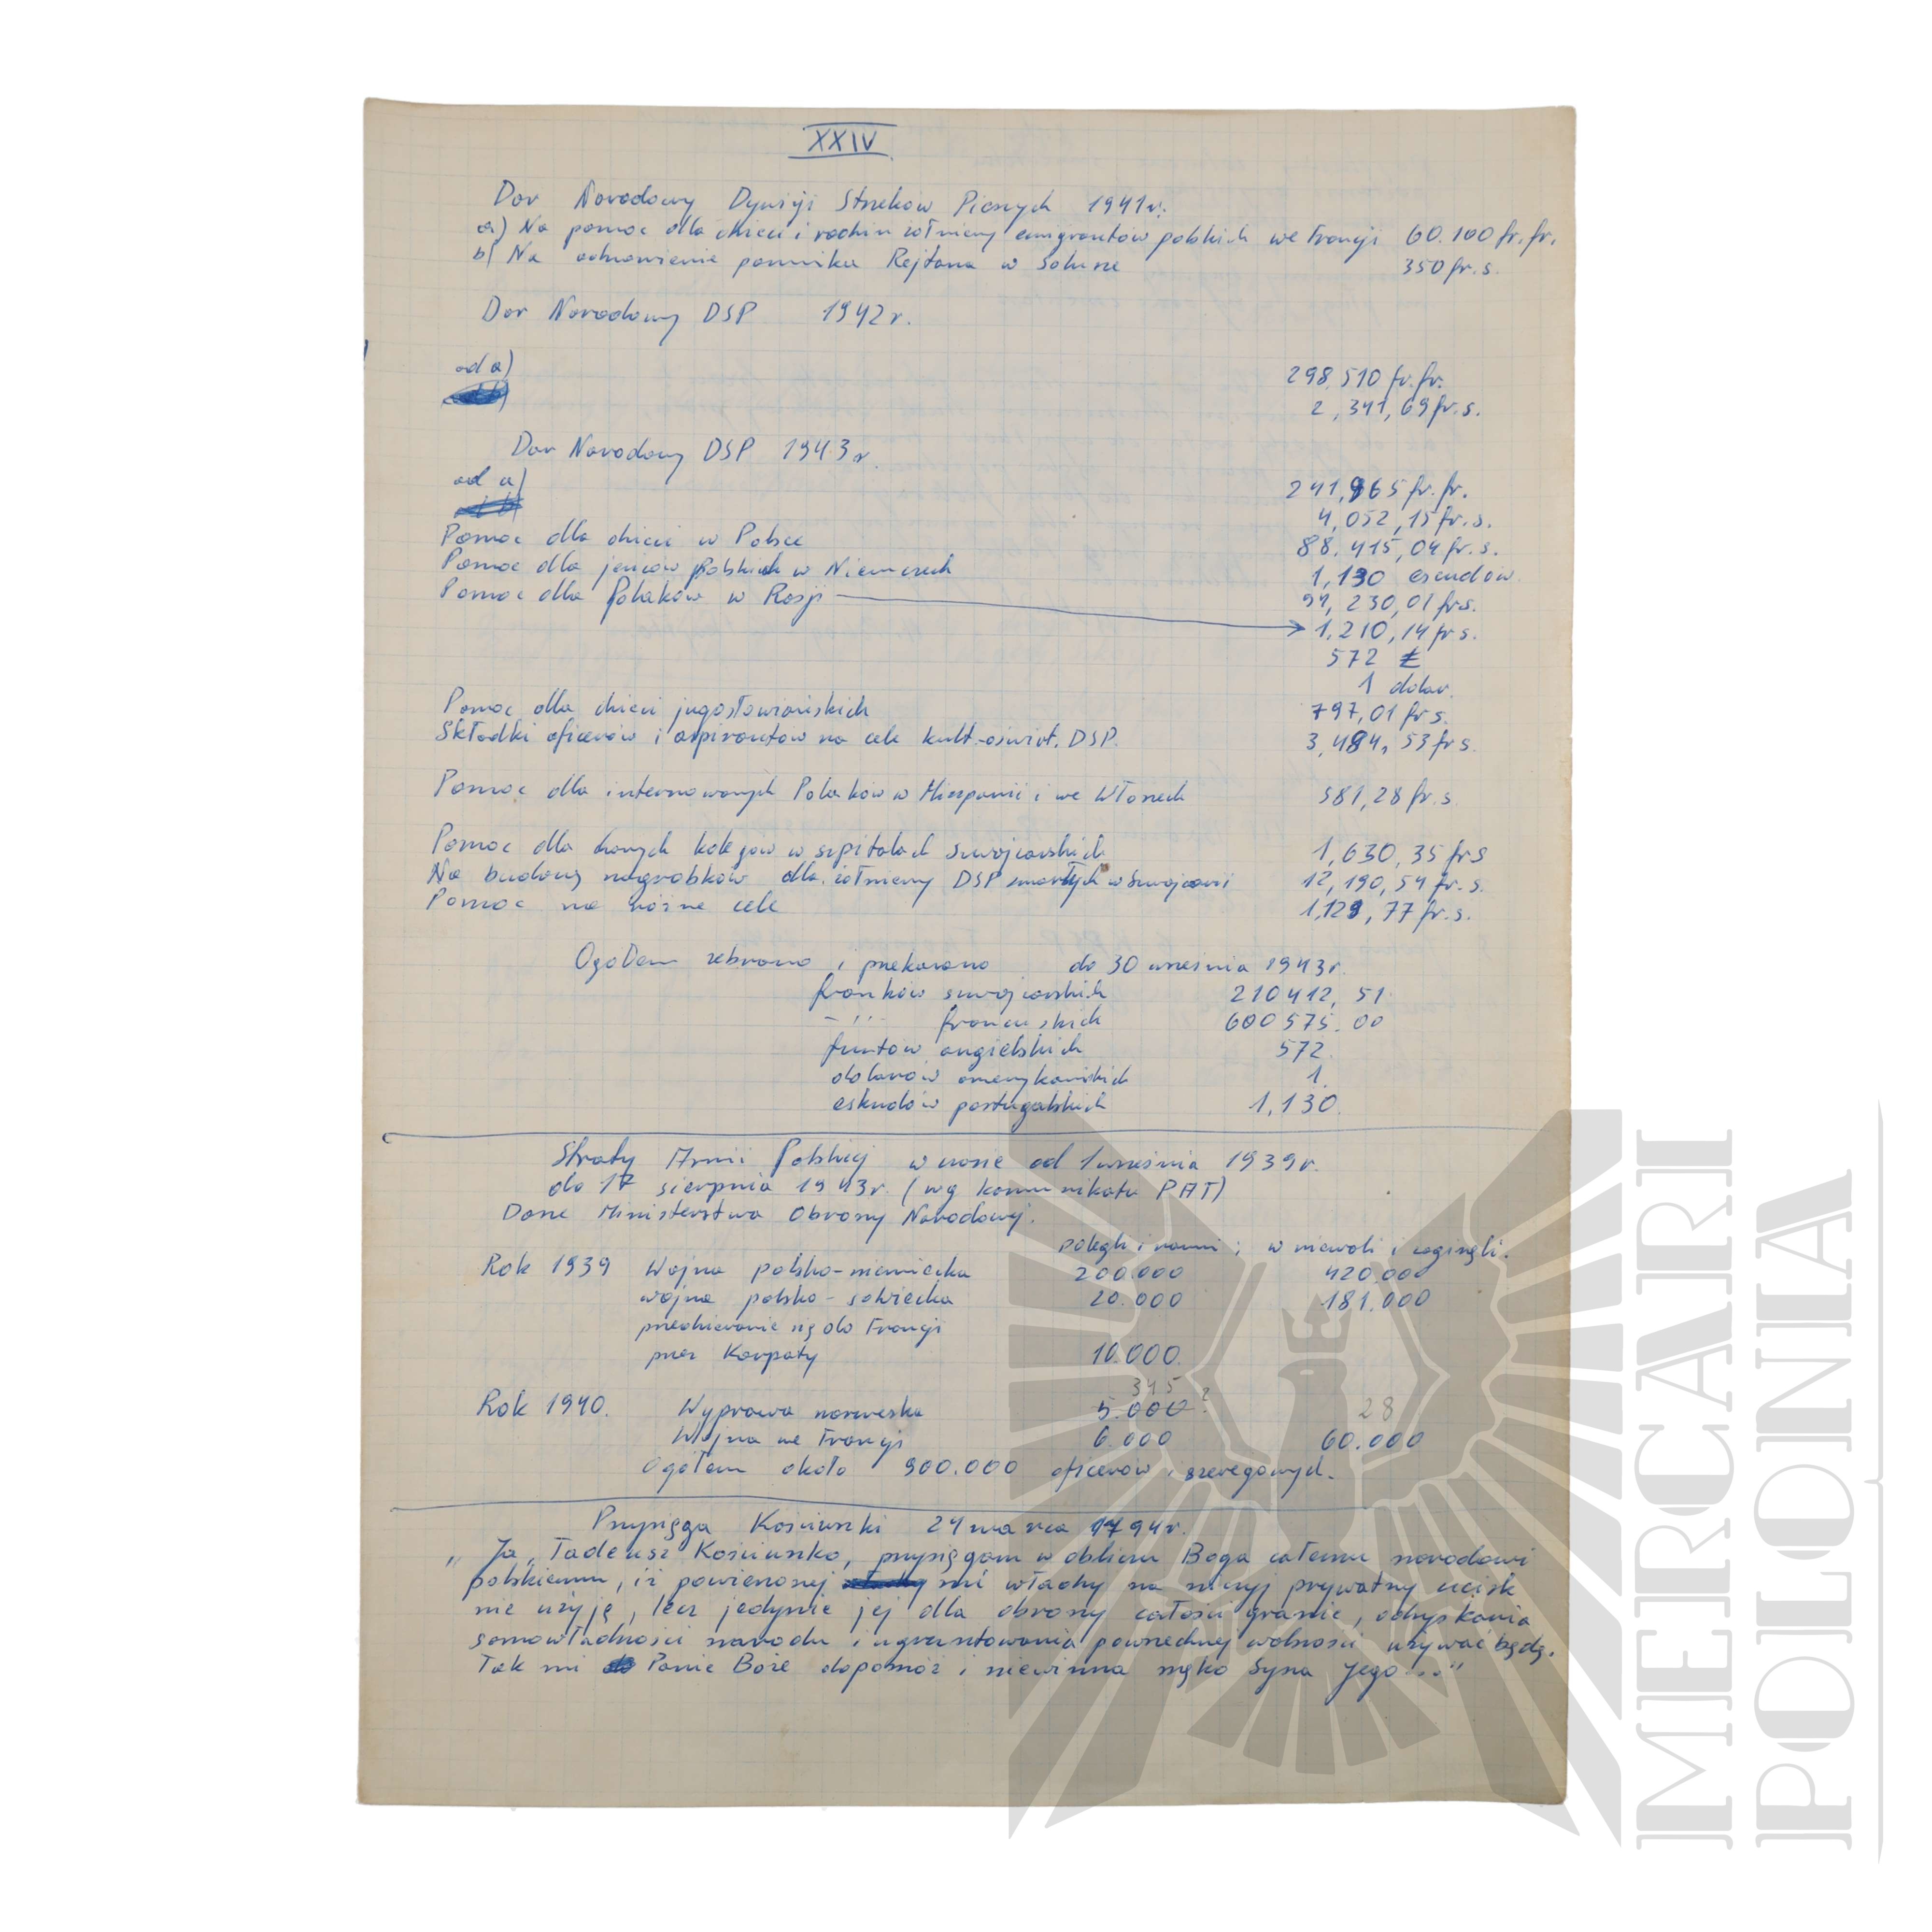 XXIV
Dar Narodowy Dywizji Strzelców Pieszych 1941r.
a) Na pomoc dla dzieci i rodzin żołnierzy emigrantów polskich we Francji 60.100 fr.fr.
b) Na odnowienie pomnika Rejtana w Solurze 350 fr.s.
Dar Narodowy DSP 1942r.
ad a) 298.510 fr.fr.
2,341,69 fr.s.
Dar Narodowy DSP 1943r.
ad a) 241,965 fr.fr.
4,052,15 fr.s.
Pomoc dla dzieci w Polsce 88.415,04 fr.s.
Pomoc dla jeńców Polskich w Niemczech 1,130 escudów
Pomoc dla Polaków w Rosji 91,230,01 frs.
→ 1,210,14 fr s.
572 £
1 dolar.
Pomoc dla dzieci jugosłowiańskich 797,01 fr s.
Składki oficerów i aspirantów na cele kult.-oświat. DSP. 3,484,53 fr s.
Pomoc dla internowanych Polaków w Hiszpanii i we Włoszech 581,28 fr.s.
Pomoc dla chorych kolegów w szpitalach szwajcarskich 1,630,35 frs
Na budowę nagrobków dla żołnierzy DSP zmarłych w Szwajcarii 12,190,54 fr.s.
Pomoc na różne cele 1,129,77 fr.s.
Ogółem zebrano i przekazano do 30 września 1943r.
franków szwajcarskich 210412,51
-"- francuskich 600575.00
funtów angielskich 572.
dolarów amerykańskich 1.
eskudów portugalskich 1,130.
Straty Armii Polskiej w czasie od 1 września 1939r.
do 17 sierpnia 1943r. (wg komunikatu PAT)
Dane Ministerstwa Obrony Narodowej.
polegli i ranni; w niewoli i zaginęli.
Rok 1939 Wojna polsko-niemiecka 200.000 420.000
wojna polsko-sowiecka 20.000 181.000
przedzieranie się do Francji
przez Karpaty 10.000.
345 28
Rok 1940. Wyprawa norweska 5.000?
Wojna we Francji 6.000 60.000
Ogółem około 900.000 oficerów i szeregowych.
Przysięga Kościuszki 24 marca 1794r.
„Ja, Tadeusz Kościuszko, przysięgam w obliczu Boga całemu narodowi
polskiemu, iż powierzonej mi władzy na niczyj prywatny ucisk
nie użyję, lecz jedynie jej dla obrony całości granic, odzyskania
samowładności narodu i ugruntowania powszechnej wolności używać będę.
Tak mi Panie Boże dopomóż i niewinna męko Syna Jego..."
MERCARI
POLONIA